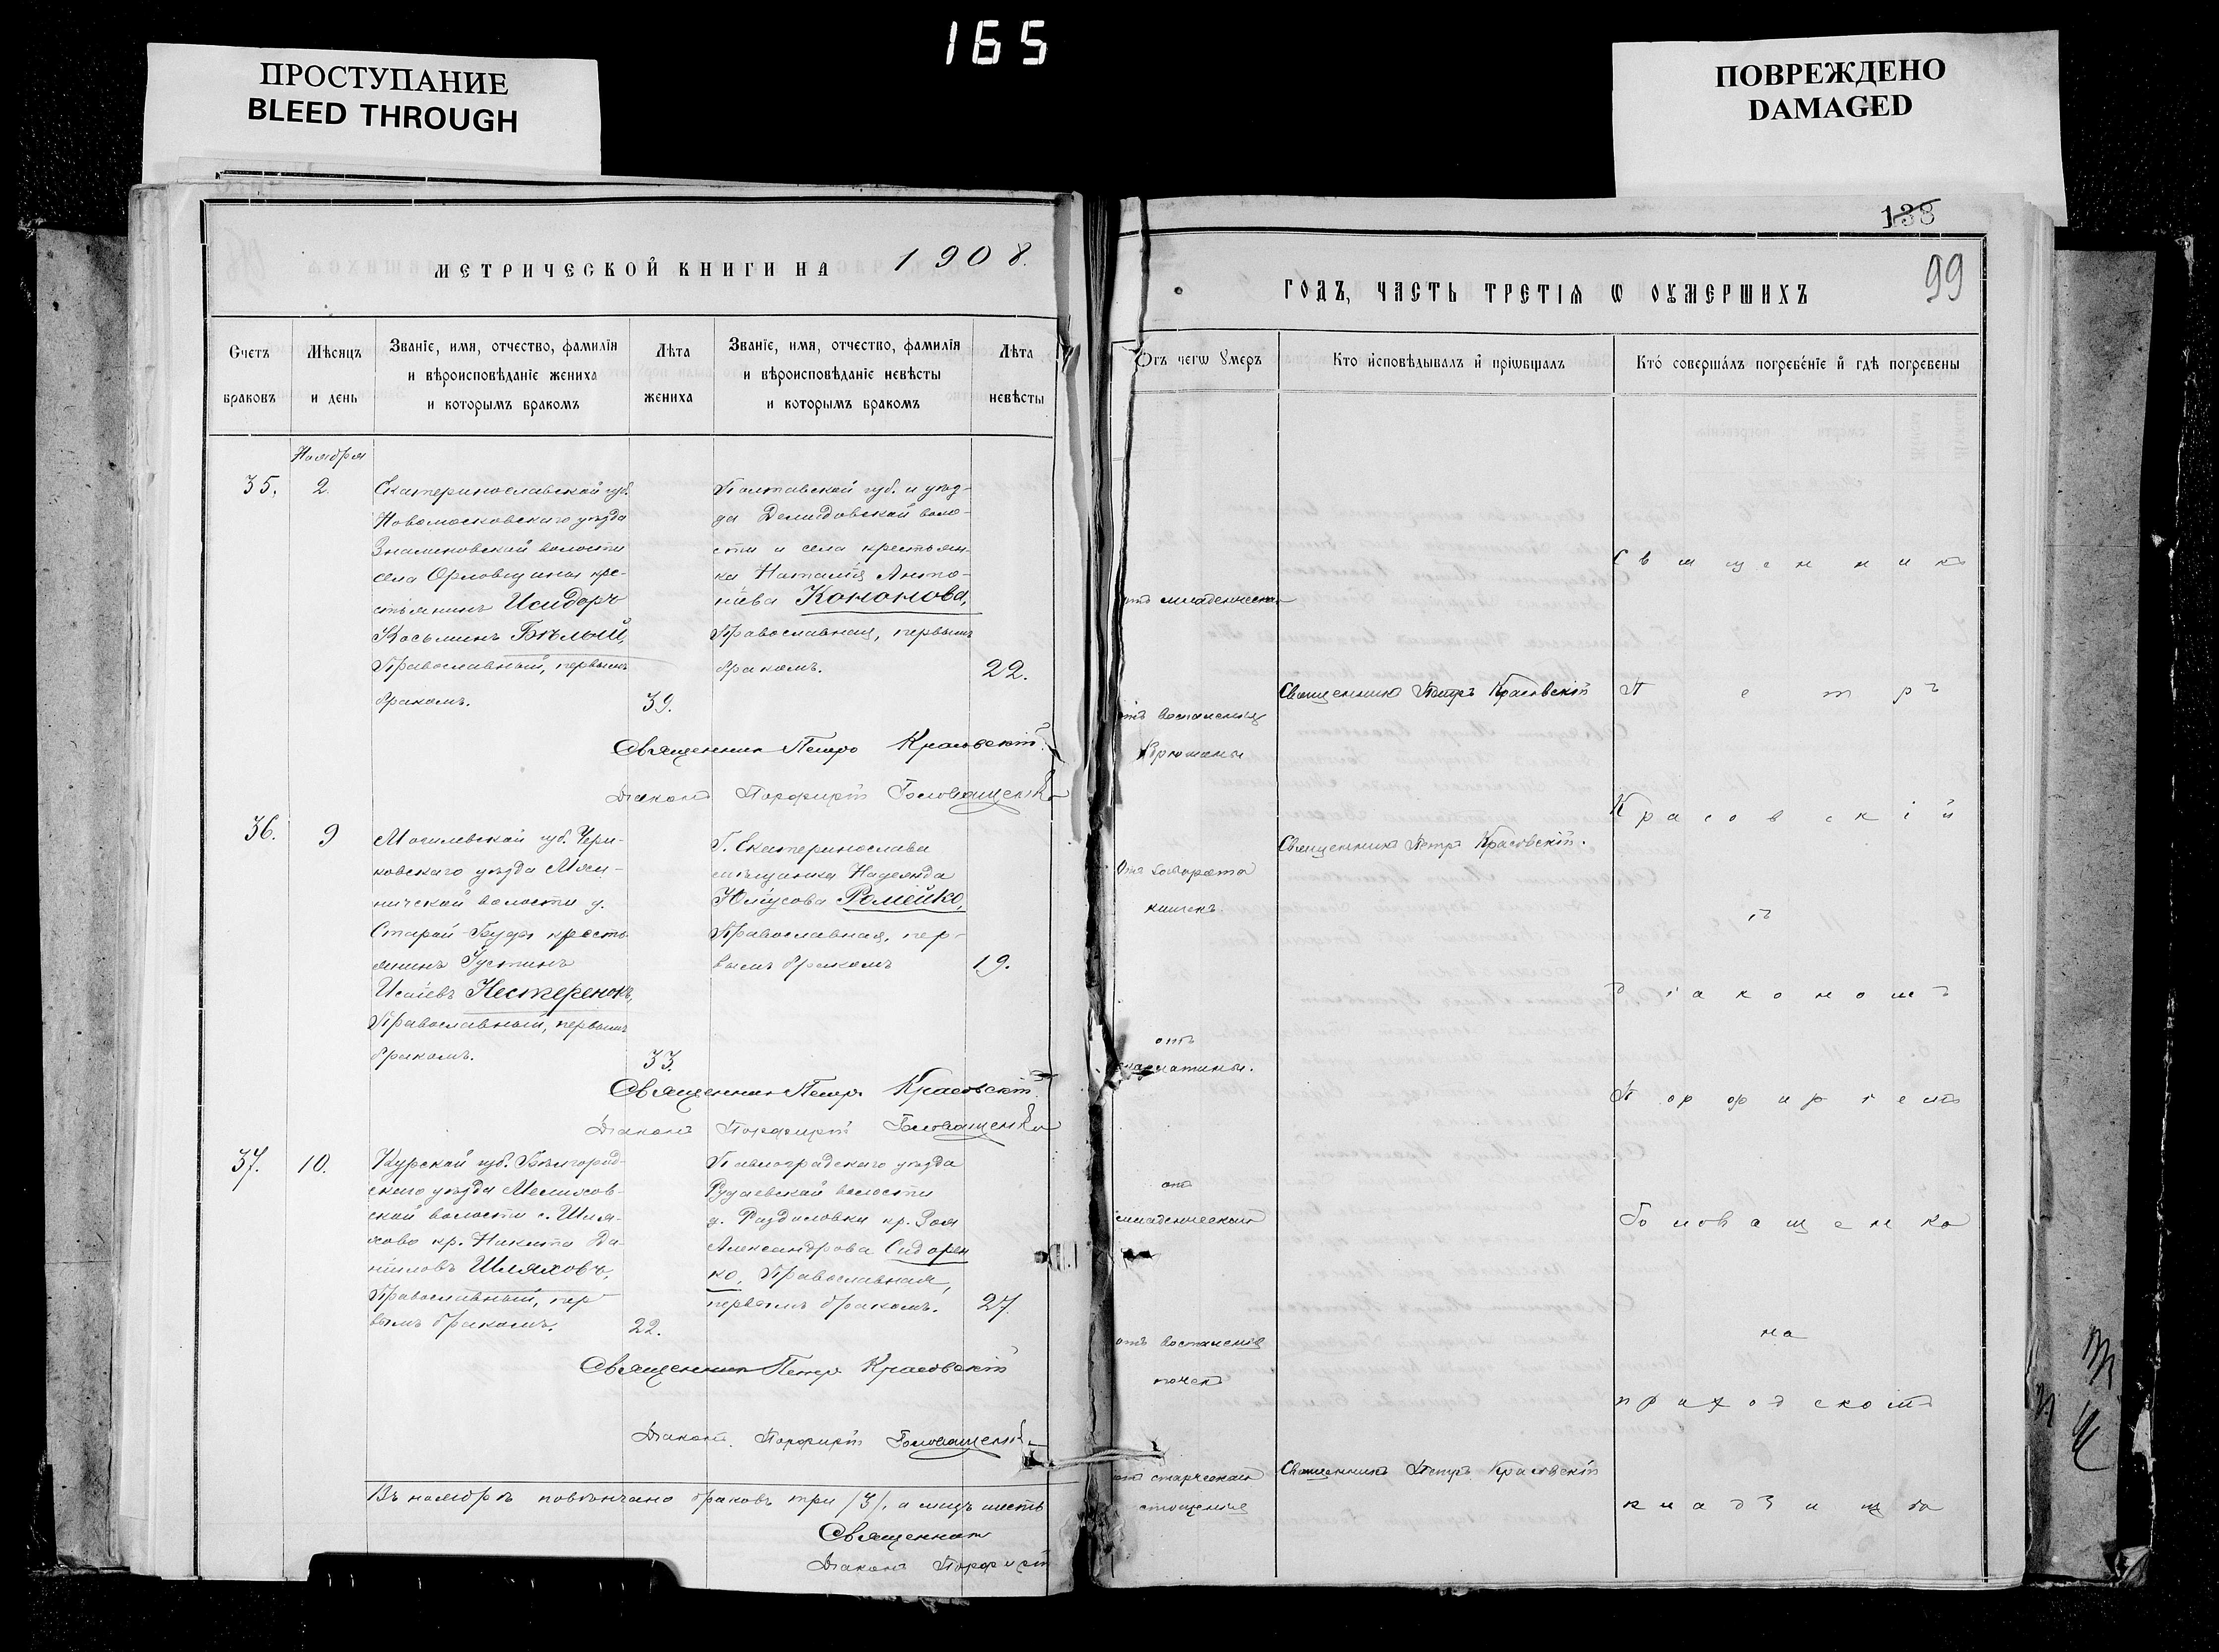 165
ПРОСТУПАНИЕ
BLEED THROUGH
ПОВРЕЖДЕНО
DAMAGED
МЕТРИЧЕСКОЙ КНИГИ НА 1908.
Счетъ браковъ
Мѣсяцъ и день
Званіе, имя, отчество, фамилія
и вѣроисповѣданіе жениха
и которымъ бракомъ
Лѣта жениха
Званіе, имя, отчество, фамилія
и вѣроисповѣданіе невѣсты
и которымъ бракомъ
Лѣта невѣсты
Ноября
35. 2.
Екатеринославской губ.
Новомосковскаго уѣзда
Знаменовской волости
села Орловщины кре-
стьянинъ Исидоръ
Косьминъ Бѣлый,
Православный, первымъ
бракомъ.
39.
Полтавской губ. и уѣз-
да Демидовской воло-
сти и села крестьян-
ка Наталія Анто-
ніева Кононова,
Православная, первымъ
бракомъ.
22.
Священник Петръ Красовскій.
Діаконъ Порфирій Головащенко
36. 9
Могилевской губ. Чери-
ковскаго уѣзда
ничской волости д.
Старой Буды кресть
янинъ Іустинъ
Исаіевъ Нестеренокъ,
Православный, первымъ
бракомъ.
33.
Г. Екатеринослава
мѣщанка Надежда
Юліусова Ромейко,
Православная, пер-
вымъ бракомъ
19.
Священник Петръ Красовскій.
Діаконъ Порфирій Головащенко
37. 10.
Курской губ. Бѣлгород-
скаго уѣзда Мелихов-
ской волости с. Шля-
хово кр. Никита Да-
ніиловъ Шляховъ,
Православный, пер
вымъ бракомъ.
22.
Павлоградскаго уѣзда
волости
д. Раздоловки кр. Зоя
Александрова Сидорен
ко, Православная,
первымъ бракомъ.
27.
Священник Петръ Красовскій
Діаконъ Порфирій Головащенко
Въ ноябрѣ повѣнчано браковъ три /3/, а лицъ шесть
Священник
Діаконъ Порфирій
138
99
ГОДЪ, ЧАСТЬ ТРЕТІѦ Ѡ ОУМЕРШИХЪ
Отъ чегѡ ᲂумеръ
Кто исповѣдывалъ и пріѡбщалъ
Кто совершалъ погребеніе и гдѣ погребены
отъ младенческой
отъ воспаленія
брюшины
кишекъ
отъ
скарлатины.
отъ
младенческой
отъ воспаленія
почекъ
отъ старческаго
истощенія
Священникъ Петръ Красовскій
Священникъ Петръ Красовскій.
Священникъ Петръ Красовскій
Священникъ
Петръ
Красовскій
съ
Діакономъ
Порфиріемъ
Головащенко
на
приходскомъ
кладбищѣ